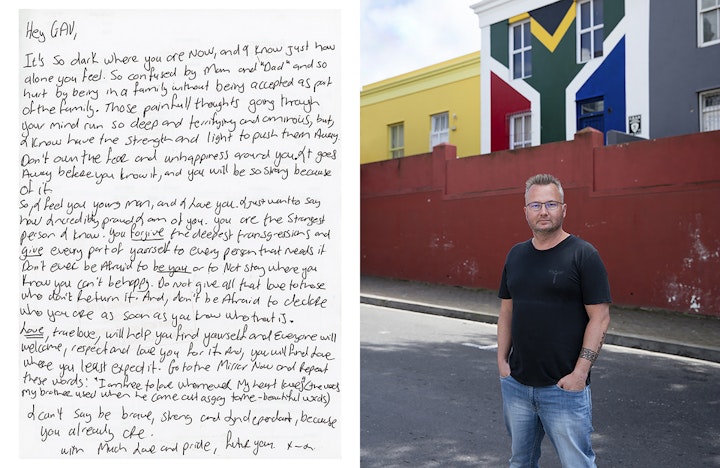 Hey GAV,
It's so dark where you are Now, and I know just how
alone you feel. So confused by Mom and "Dad" and so
hurt by being in a family without being accepted as part
of the family. Those painfull thoughts going through
your mind run so deep and terrifying and ominous, but,
I know have the strength and light to push them Away.
Don't own the fear and unhappiness around you. It goes
Away before you know it, and you will be so strong because
of it.
So, I feel you young man, and I love you. I just want to say
how Incredibly proud I am of you. you are the Strongest
person I know. You forgive the deepest transgressions and
give every part of yourself to every person that needs it
Don't ever be Afraid to be you or to Not stay where you
know you can't be happy. Do not give all that love to those
who don't return it. And, don't be Afraid to declare
who you are as soon as you know who that is.
Love, true love, will help you find yourself and Everyone will
welcome, respect and love you for it. And, you will find love
where you least expect it. Go to the Mirror Now and Repeat
these words: "I am free to love whomever My heart loves" (the words
my brother used when he came out as gay to me - beautiful words)
I can't say be brave, strong and Independant, because
you already are.
with Much Love and pride, future you. x